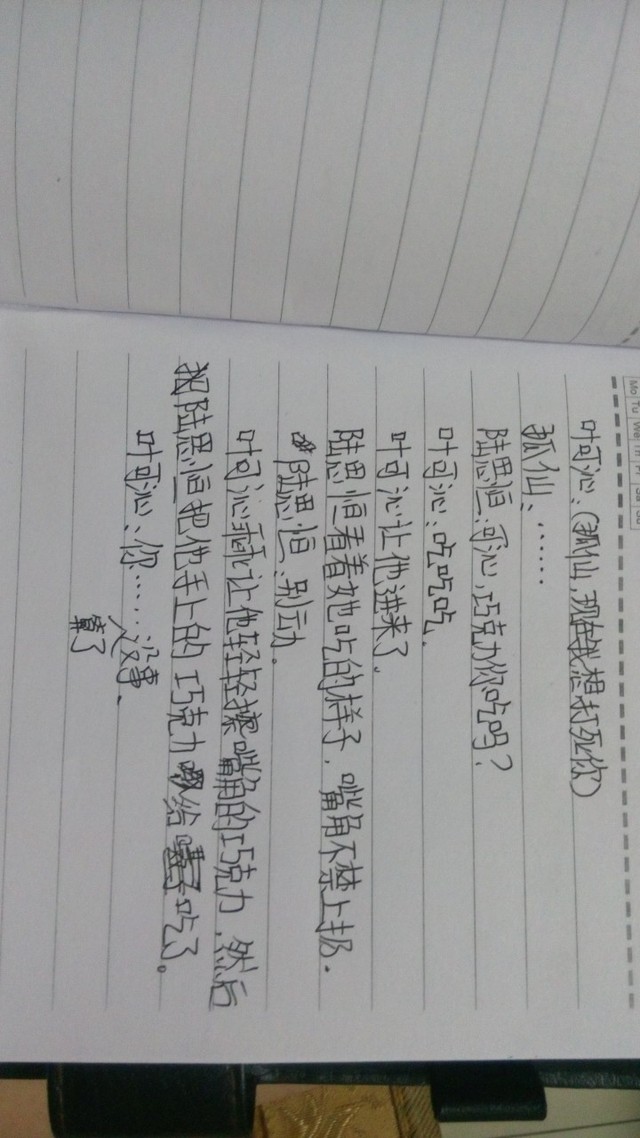 Mo Tu We Th Fr Sa Su
叶可沁:(狐仙,现在我想打死你)
狐仙:……
陆思恒:可沁,巧克力你吃吗?
叶可沁:吃吃吃.
叶可沁让他进来了.
陆思恒看着她吃的样子,嘴角不禁上扬.
陆思恒:别动.
叶可沁乖乖让他轻轻擦嘴角的巧克力,然后
陆思恒把他手上的巧克力给吃了。
叶可沁:你……没事.
算了